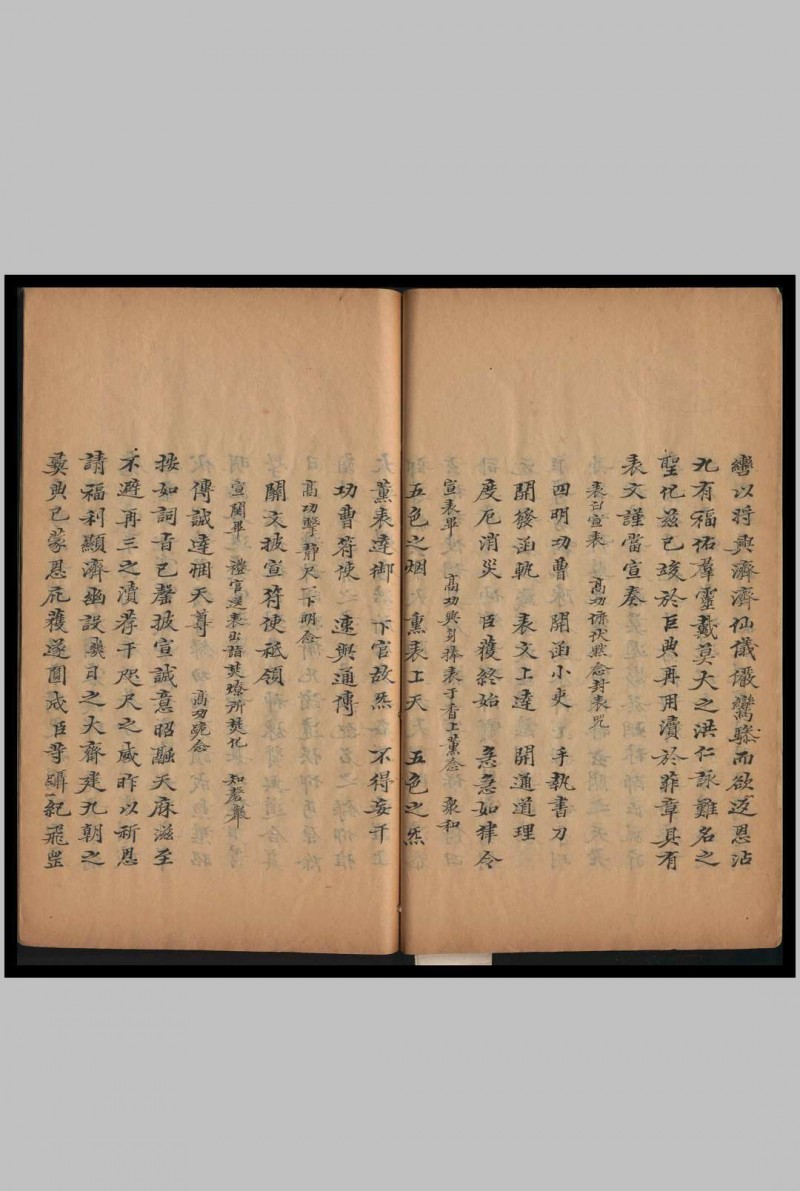 鸞以將興濟濟仙儀儼鸞驂而欲返恩沾
九有福佑羣靈戴莫大之洪仁詠難名之
聖化兹已琰於巨典再用瀆於菲章具有
表文謹當宣奏
表白宣表 高功俯伏默念封表咒
四明功曹 開函小吏 手執書刀
開發函軌 表文上達 開通道理
度厄消災 臣獲終始 急急如律令
宣表畢 高功興身捧表于香上薰念 衆和
五色之烟 熏表上天 五色之炁
薰表達御 下官故炁 不得妄干
功曹符使 速與通傳
高功擊靜尺一下明念
關文披宣符使祗領
宣關畢 禮官送表出詣焚燎所焚化 知磬舉
傳誠達悃天尊 高功跪念
按如詞旨已罄披宣誠意昭融天庥滋至
不避再三之瀆荐干咫尺之威昨以祈恩
請福利顯濟幽設 日之大齋建九朝之
奠典已蒙恩庇獲遂圓成臣等躡紀飛罡